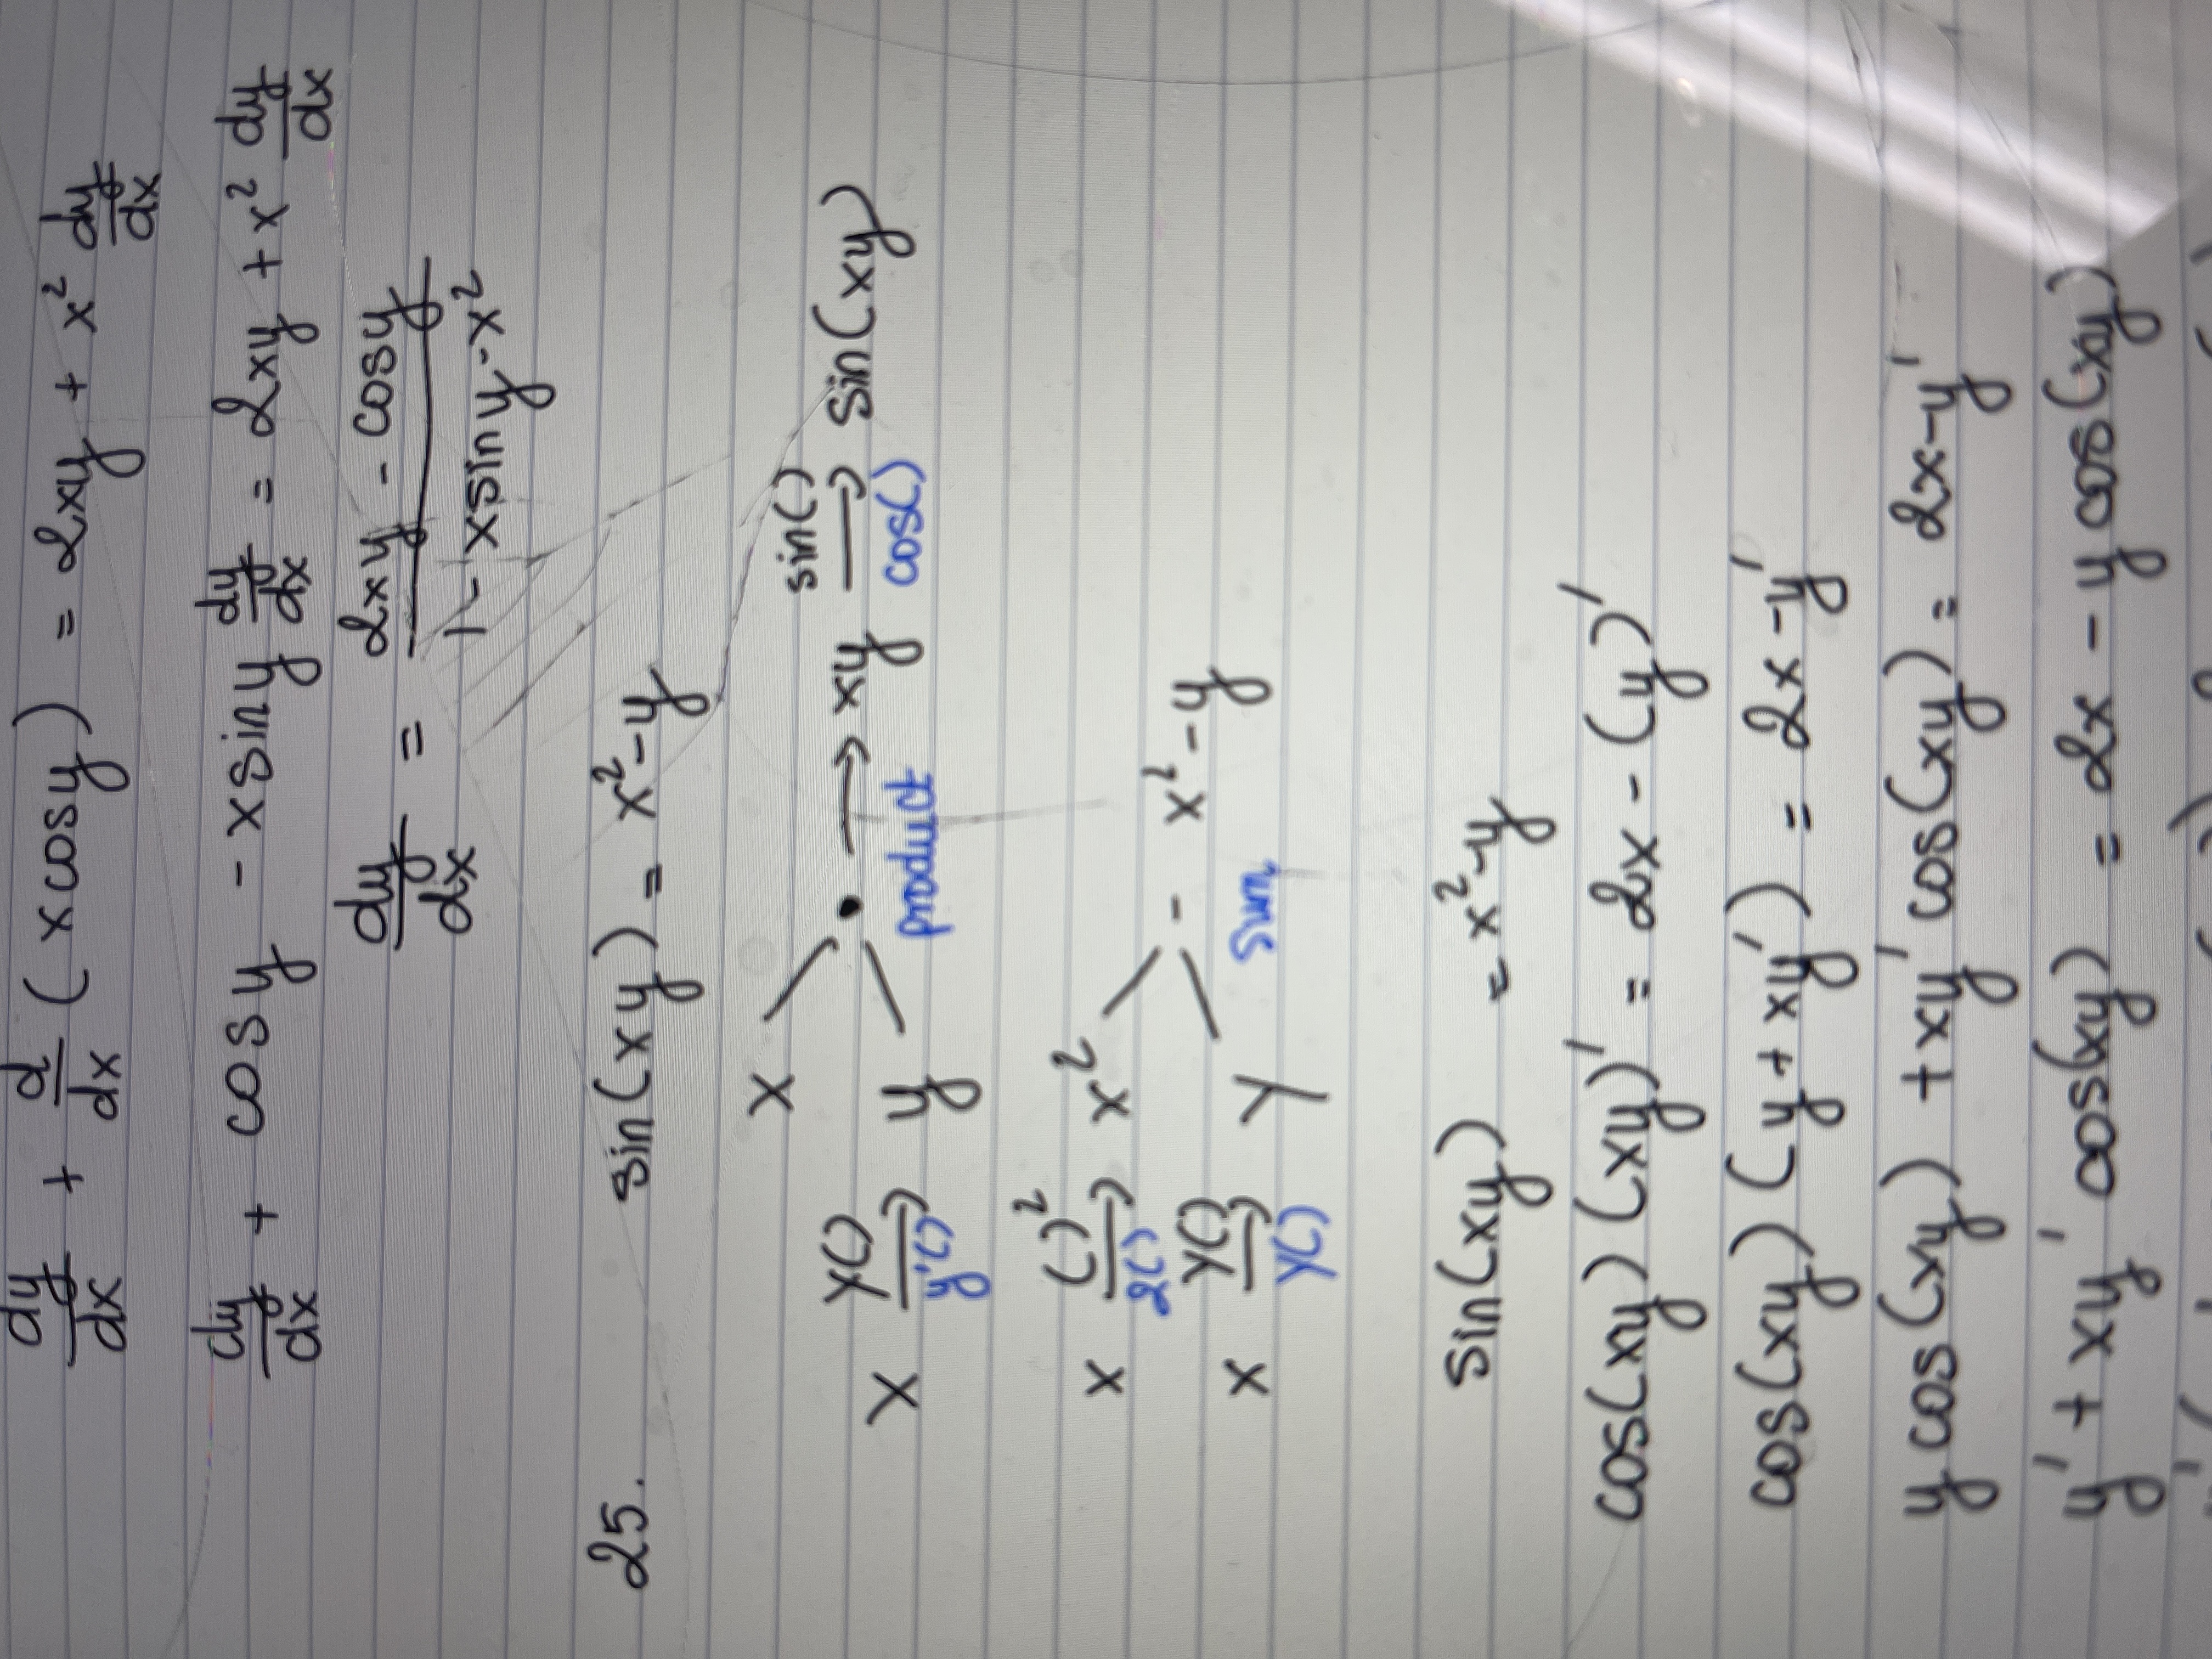 dy/dx + d/dx (x cos y) = 2xy + x² dy/dx
dy/dx + cos y - x sin y dy/dx = 2xy + x² dy/dx
dy/dx = (2xy - cos y)/(1 - x sin y - x²)
25. sin(xy) = x² - y
x
sin()
x y() → y • → xy → sin(xy)
y'() product cos()
()² x²
x → - x² - y
2()
y() sum
x → y
y()
sin(xy) = x² - y
cos(xy) (xy)' = 2x - (y)'
cos(xy) (y + xy') = 2x - y'
y cos(xy) + xy' cos(xy) = 2x - y'
y' + xy' cos(xy) = 2x - y cos(xy)